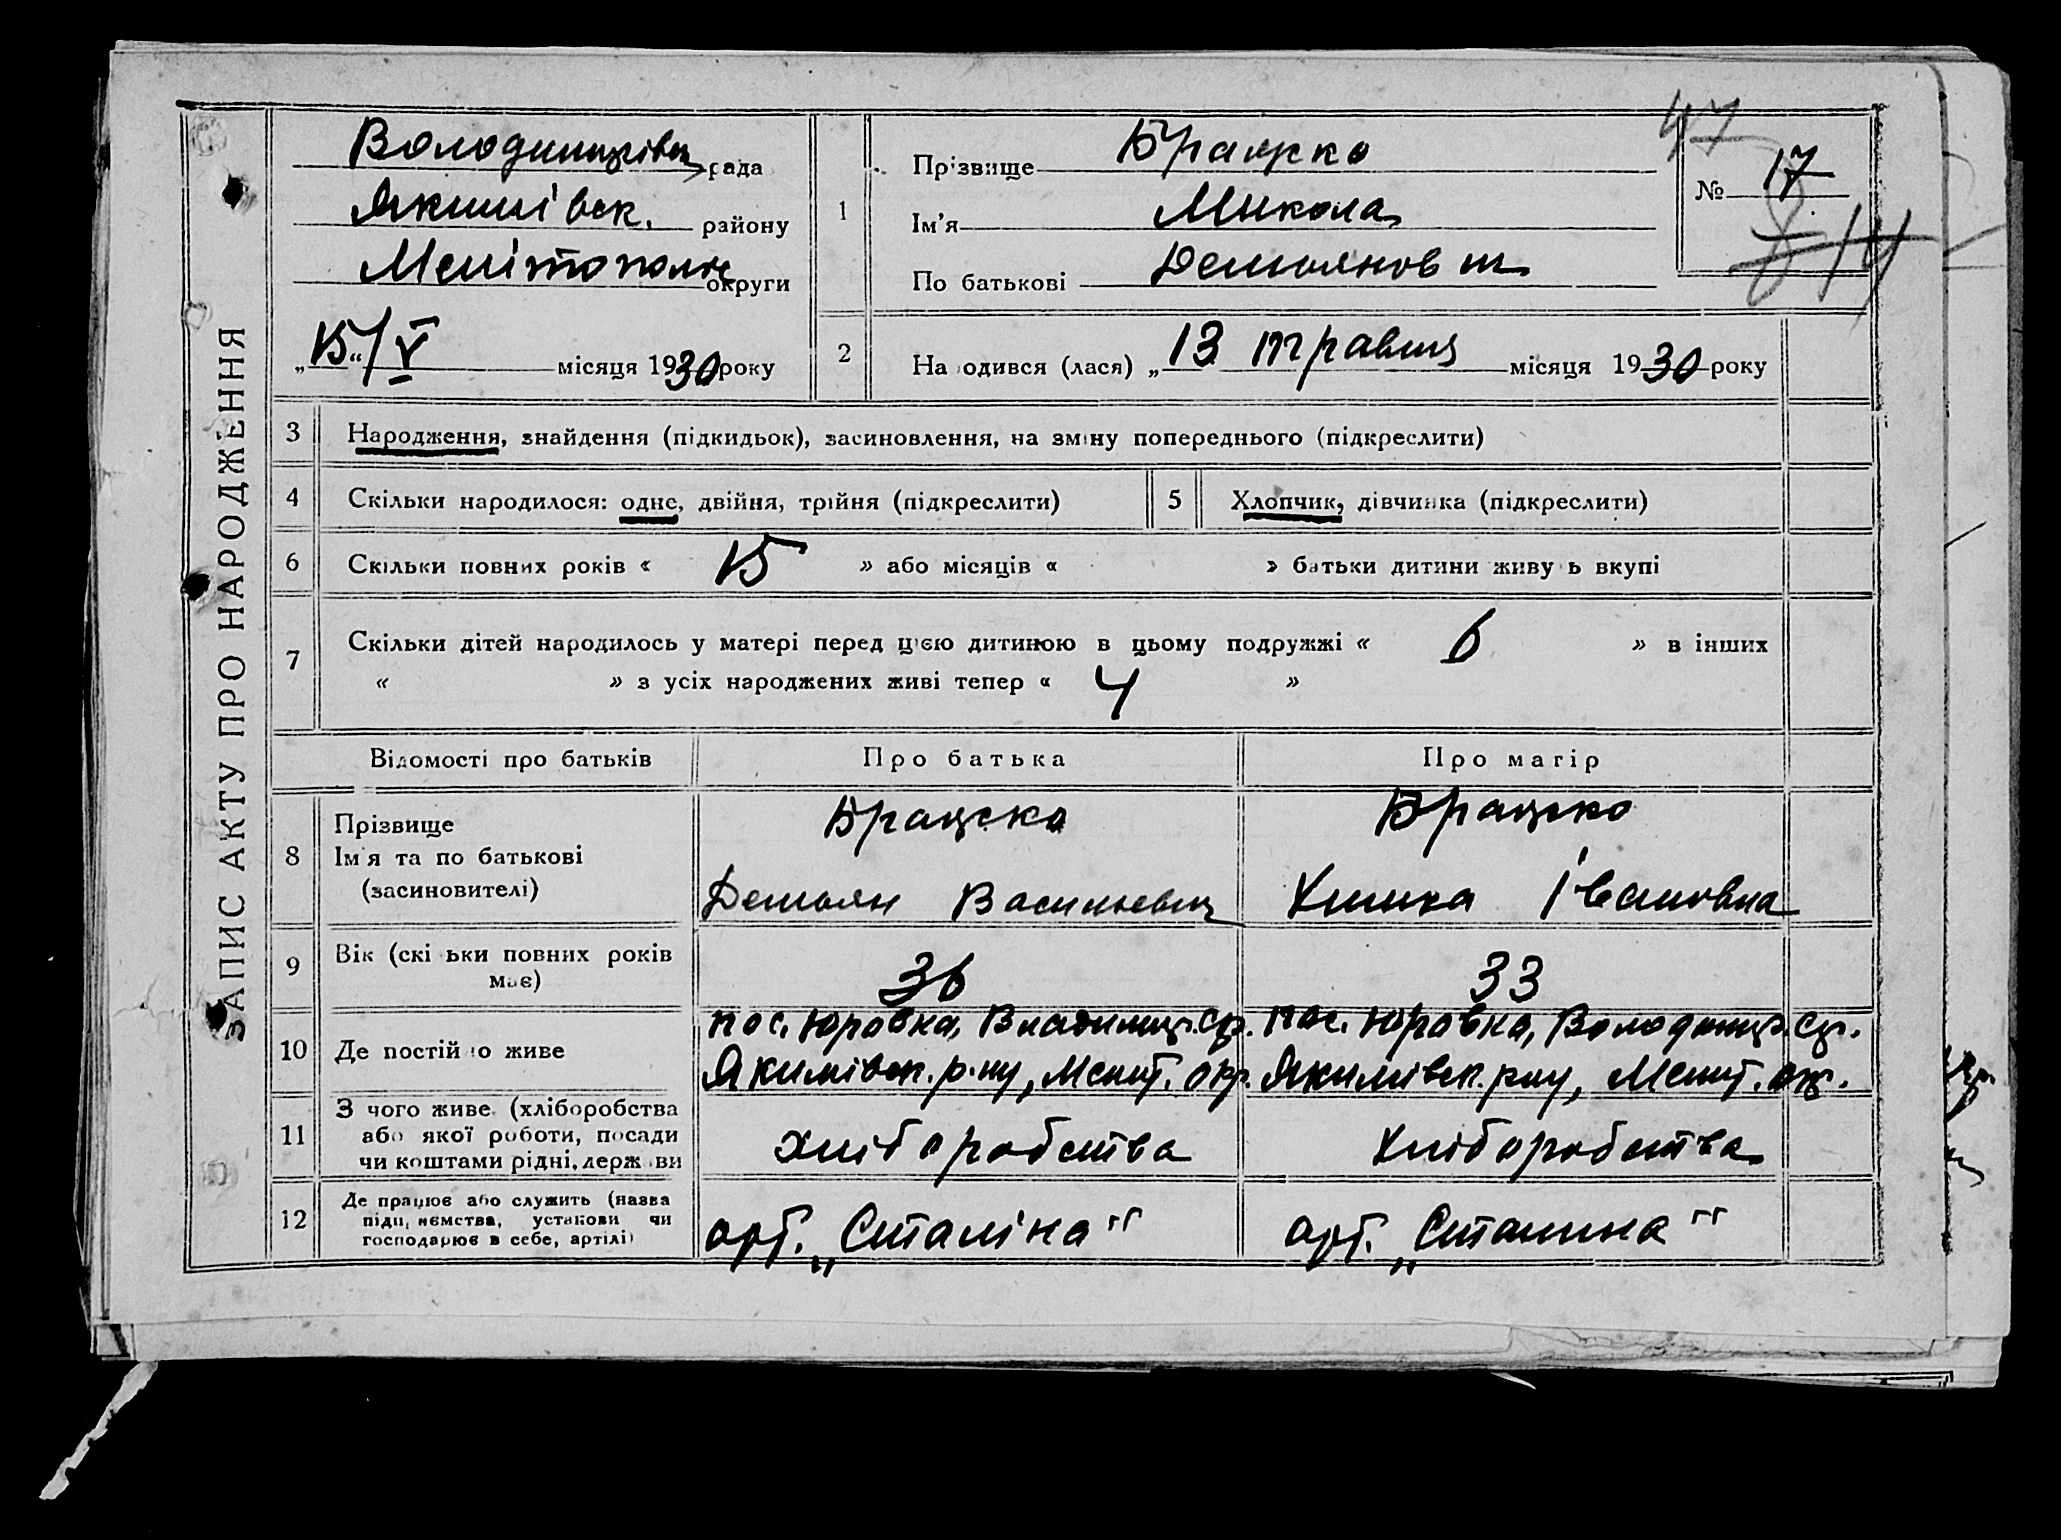 ЗАПИС АКТУ ПРО НАРОДЖЕННЯ
рада
Якимівск. району
Мелітопольс округи
„15“/V місяця 1930 року
1
Прізвище
Ім'я Микола
По батькові Демьянов
№ 17
47
2
На одився (лася) „13 травня місяця 1930 року
3 Народження, знайдення (підкидьок), засиновлення, на зміну попереднього (підкреслити)
4 Скільки народилося: одне, двійня, трійня (підкреслити)
5 Хлопчик, дівчинка (підкреслити)
6 Скільки повних років « 15 » або місяців « » батьки дитини живу ь вкупі
7 Скільки дітей народилось у матері перед цією дитиною в цьому подружжі « 6 » в інших
« » з усіх народжених живі тепер « 4 »
Відомості про батьків Про батька Про матір
8
Прізвище
Ім'я та по батькові
(засиновителі)
Брацско Брацско
Демьян Васильевич Івановна
9 Вік (скі ьки повних років
має)
36 33
10 Де постій о живе
пос. Юровка, Владимир. ср. пос. Юровка, Володимир. ср.
Якимівск. р-ну, Меліт. окр. Якимівск. рну, Меліт. окр.
11
З чого живе (хліборобства
або якої роботи, посади
чи коштами рідні, держ ви
хліборобства хліборобства
12
Де працює або служить (назва
підп, иємства, установи чи
господарює в себе, артілі)
арт. „Сталіна" арт. „Сталина"